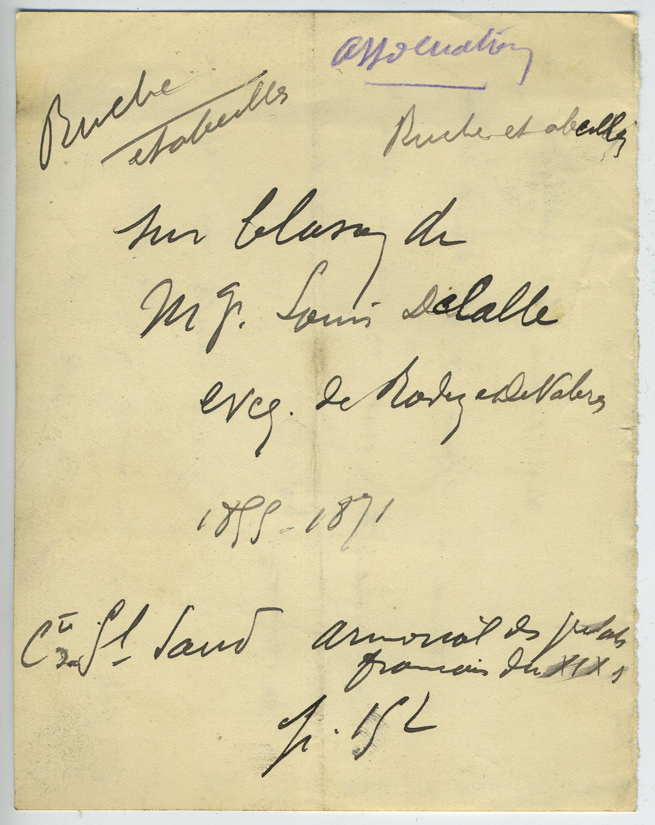 association
Ruche
et abeilles
Ruche et abeilles
sur blason de
Mgr. Louis Delalle
evêq. de Rodez et De Vabres
1855-1871
Cte de St Saud armorial des prélats
francais du XIX s
p. 152